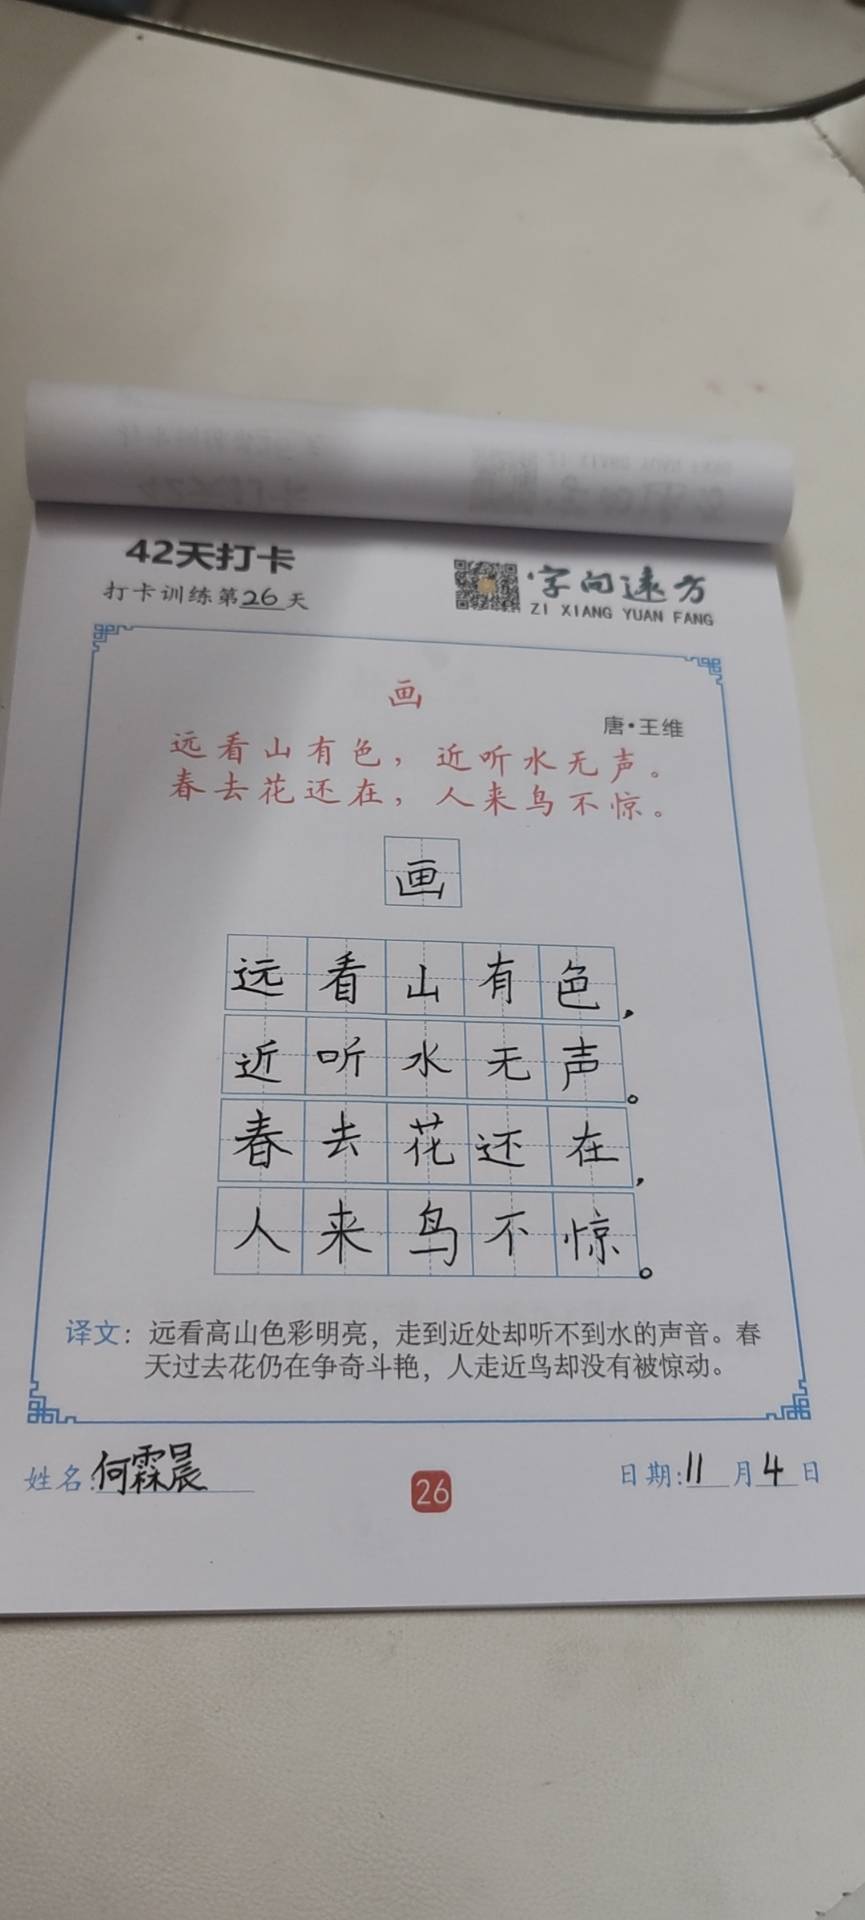 42天打卡
打卡训练第26天
字向远方
ZI XIANG YUAN FANG
画
唐·王维
远看山有色，近听水无声。
春去花还在，人来鸟不惊。
画
远看山有色，
近听水无声。
春去花还在，
人来鸟不惊。
译文：远看高山色彩明亮，走到近处却听不到水的声音。春
天过去花仍在争奇斗艳，人走近鸟却没有被惊动。
姓名:何霖晨
26
日期:11月4日